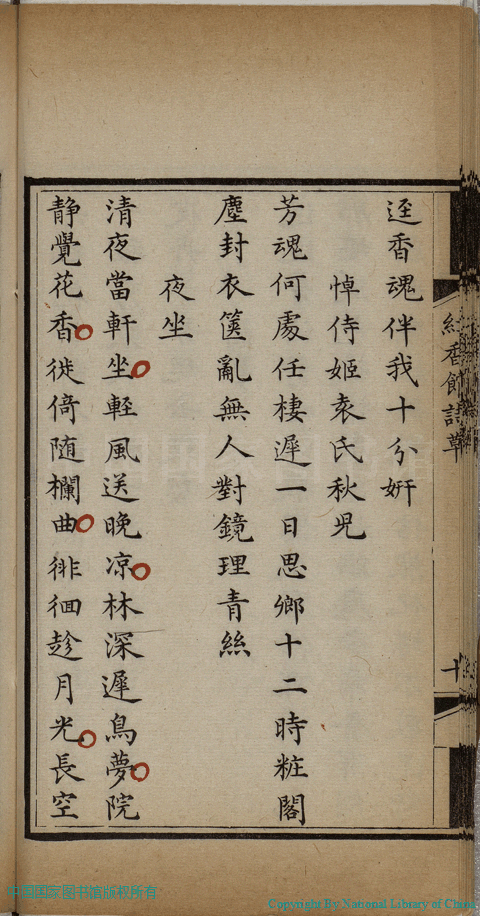 逕香魂伴我十分妍
悼侍姬袁氏秋兕
芳魂何處任棲遲一日思鄉十二時粧閣
塵封衣篋亂無人對鏡理青絲
夜坐
清夜當軒坐輕風送晚凉林深遲鳥夢院
静覺花香徙倚随欄曲徘徊趁月光長空
香飾詩草
十
中国国家图书馆版权所有
Copyright By National Library of China